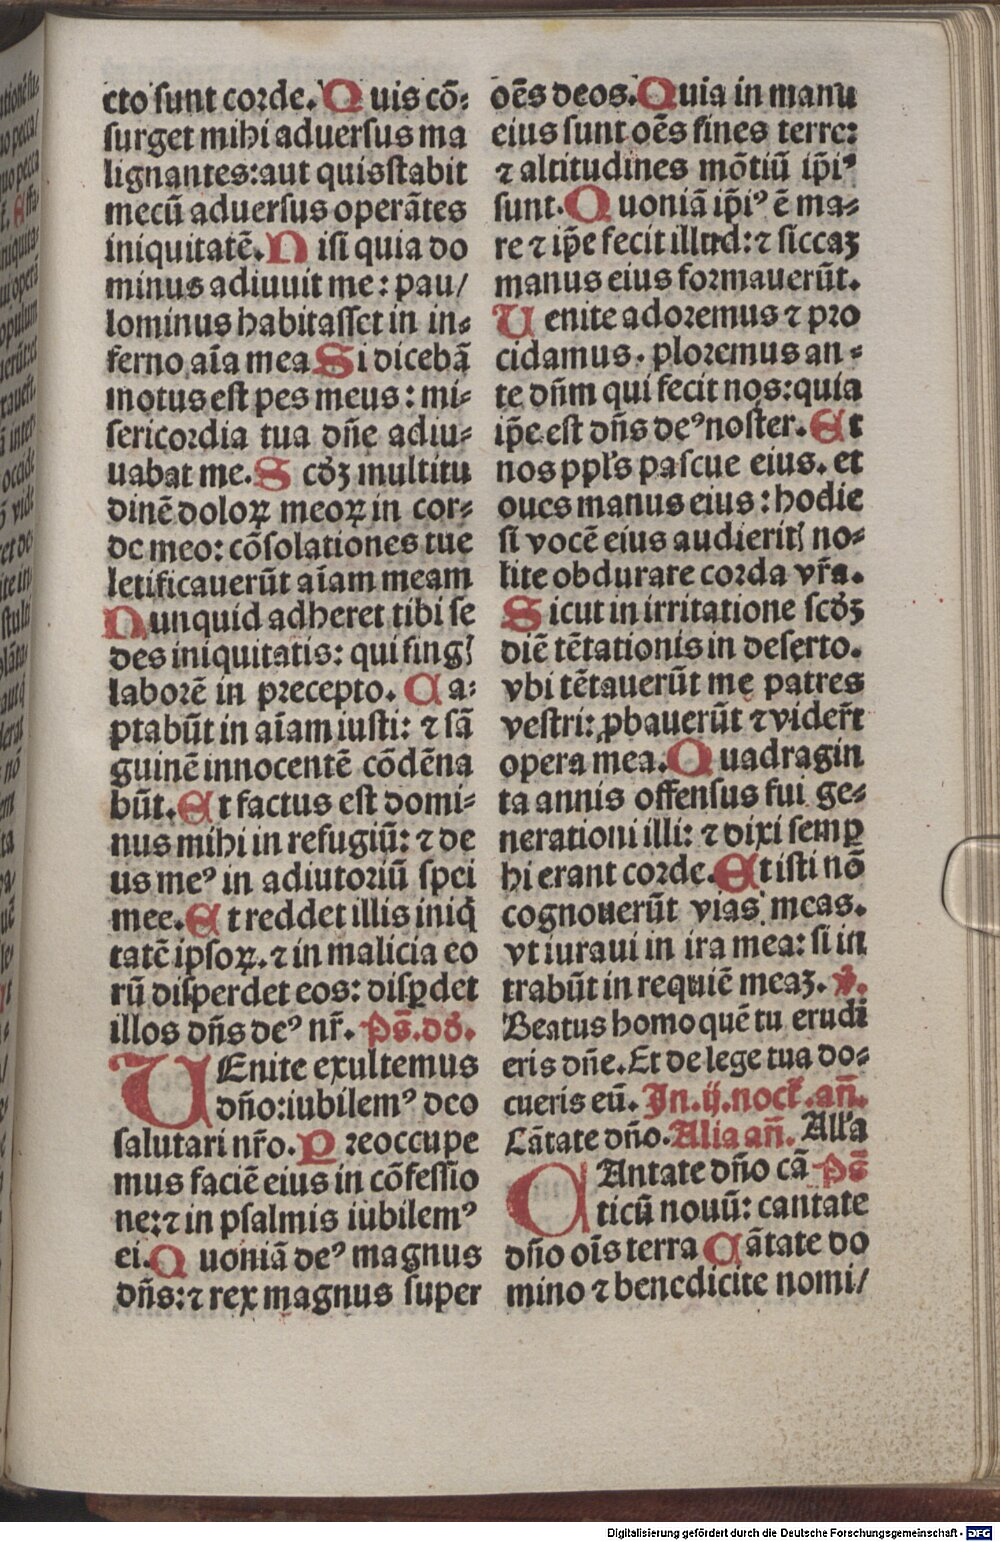 cto sunt corde. Quis cō⸗
surget mihi aduersus ma
lignantes: aut quis stabit
mecū aduersus operātes
iniquitatē. Nisi quia do
minus adiuuit me: pau/
lominus habitasset in in⸗
ferno aīa mea Si dicebā
motus est pes meus: mi⸗
sericordia tua dn̄e adiu⸗
uabat me. Scd̄ꝫ multitu
dinē doloꝝ meoꝝ in cor⸗
de meo: cōsolationes tue
letificauerūt aīam meam
Nunquid adheret tibi se
des iniquitatis: qui fingꝭ
laborē in precepto. Ca⸗
ptabūt in aīam iusti: ⁊ sā
guinē innocentē cōdēna
būt. Et factus est domi⸗
nus mihi in refugiū: ⁊ de
us meꝰ in adiutoriū spei
mee. Et reddet illis iniq̇
tatē ipsoꝝ. ⁊ in malicia eo
rū disperdet eos: disꝑdet
illos dn̄s deꝰ nr̄. Ps̄. dd̄.
UEnite exultemus
dn̄o: iubilemꝰ deo
salutari nr̄o. Preoccupe
mus faciē eius in cōfessio
ne: ⁊ in psalmis iubilemꝰ
ei. Quoniā deꝰ magnus
dn̄s: ⁊ rex magnus super
oēs deos. Quia in manu
eius sunt oēs fines terre:
⁊ altitudines mōtiū ip̄iꝰ
sunt. Quoniā ip̄iꝰ ē ma⸗
re ⁊ ip̄e fecit illud: ⁊ siccaꝫ
manus eius formauerūt.
Uenite adoremus ⁊ pro
cidamus. ploremus an⸗
te dn̄m qui fecit nos: quia
ip̄e est dn̄s deꝰ noster. Et
nos ppl's pascue eius. et
oues manus eius: hodie
si vocē eius audieritꝭ no⸗
lite obdurare corda vr̄a.
Sicut in irritatione scd̄ꝫ
diē tētationis in deserto.
vbi tētauerūt me patres
vestri: ꝓbauerūt ⁊ vider̄t
opera mea. Quadragin
ta annis offensus fui ge⸗
nerationi illi: ⁊ dixi semꝑ
hi erant corde. Et isti nō
cognouerūt vias meas.
vt iuraui in ira mea: si in
trabūt in requiē meaꝫ. ℣.
Beatus homo quē tu erudi
eris dn̄e. Et de lege tua do⸗
cueris eū. In. ij. noct̄. an̄.
Cātate dn̄o. Alia an̄. All'a
CAntate dn̄o cā Ps̄
ticū nouū: cantate
dn̄o oīs terra Cātate do
mino ⁊ benedicite nomi/
Digitalisierung gefördert durch die Deutsche Forschungsgemeinschaft - DFG